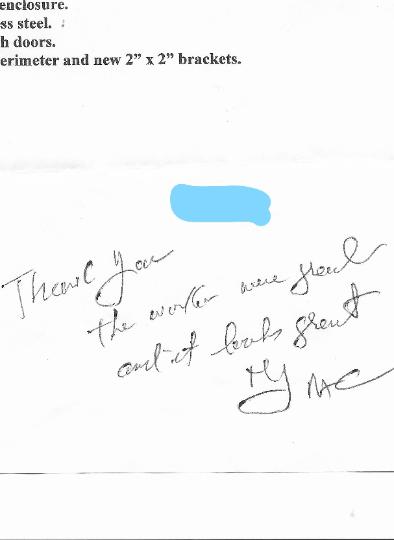 enclosure.
ss steel.
h doors.
erimeter and new 2” x 2” brackets.
Thank You
the worker were great
and it looks great
TY